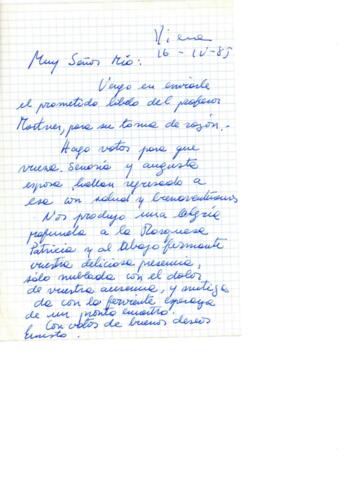 Viena
16-IV-85
Muy Señor Mío:
Vengo en enviarle
el prometido libelo del profesor
Mostner, para su toma de razón.-
Hago votos para que
vuesa Señoría y augusta
esposa hallan regresado a
esa con salud y
Nos produjo una alegría
profunda a la Marquesa
Patricia y al abajo firmante
vuestra deliciosa presencia,
sólo nublada con el dolor
de vuestra ausencia, y mitiga
da con la ferviente esperanza
de un pronto encuentro.
Con votos de buenos deseos
Ernesto.